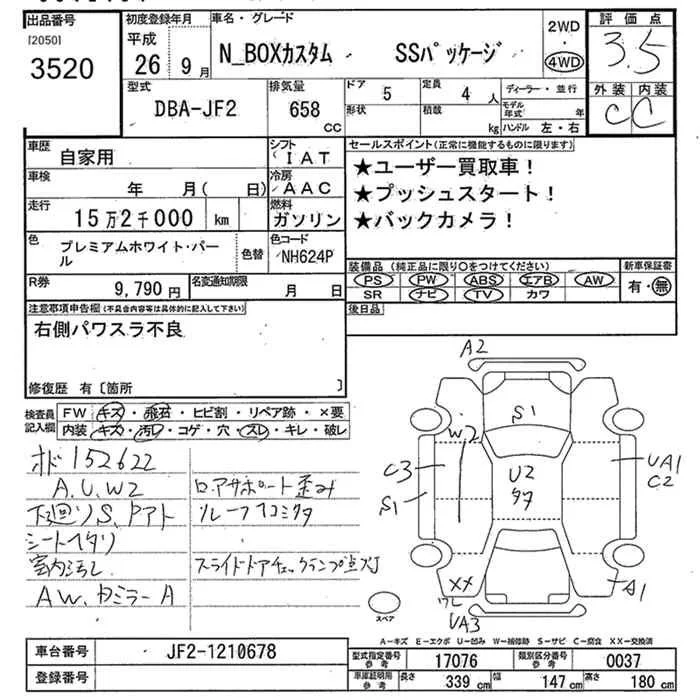 出品番号
[2050]
3520
初度登録年月
平成
26 9 月
車名・グレード
N_BOXカスタム SSパッケージ
2WD
・
4WD
評価点
3.5
外装 内装
C C
型式
DBA-JF2
排気量
658
cc
ドア 5
形状
定員 4 人
積載 kg
ディーラー・並行
モデル年式 年
ハンドル 左・右
車歴
自家用
シフト
IAT
車検
年 月( 日)
冷房
AAC
走行
15万2千000 km
燃料
ガソリン
色
プレミアムホワイト・パール
色替
色コード
NH624P
R券
9,790 円
名変通知期限
月 日
セールスポイント(正常に機能するものに限ります)
★ユーザー買取車!
★プッシュスタート!
★バックカメラ!
装備品 (純正品に限り○をつけてください)
PS PW ABS エアB AW
SR ナビ TV カワ
新車保証書
有・無
後日品
注意事項申告欄(不具合内容等は具体的に記入して下さい)
右側パワスラ不良
修復歴 有〔箇所 〕
検査員記入欄
FW キズ・飛石・ヒビ割・リペア跡・×要
内装 キズ・汚レ・コゲ・穴・スレ・キレ・破レ
オド152622
A.U.W2
下廻りS、Pアト
シートヘタリ
室内汚し
AW、カミラーA
ロアサポート歪み
スライドドアチェックランプ点灯
A2
S1
W2
C3
S1
U2
UA1
C2
XX
ワレ
UA3
A1
スペア
A-キズ E-エクボ U-凹み W-補修跡 S-サビ C-腐食 XX-交換済
車台番号
JF2-1210678
登録番号
型式指定番号参考
17076
類別区分番号参考
0037
車庫証明用参考
長さ 339 cm
幅 147 cm
高さ 180 cm